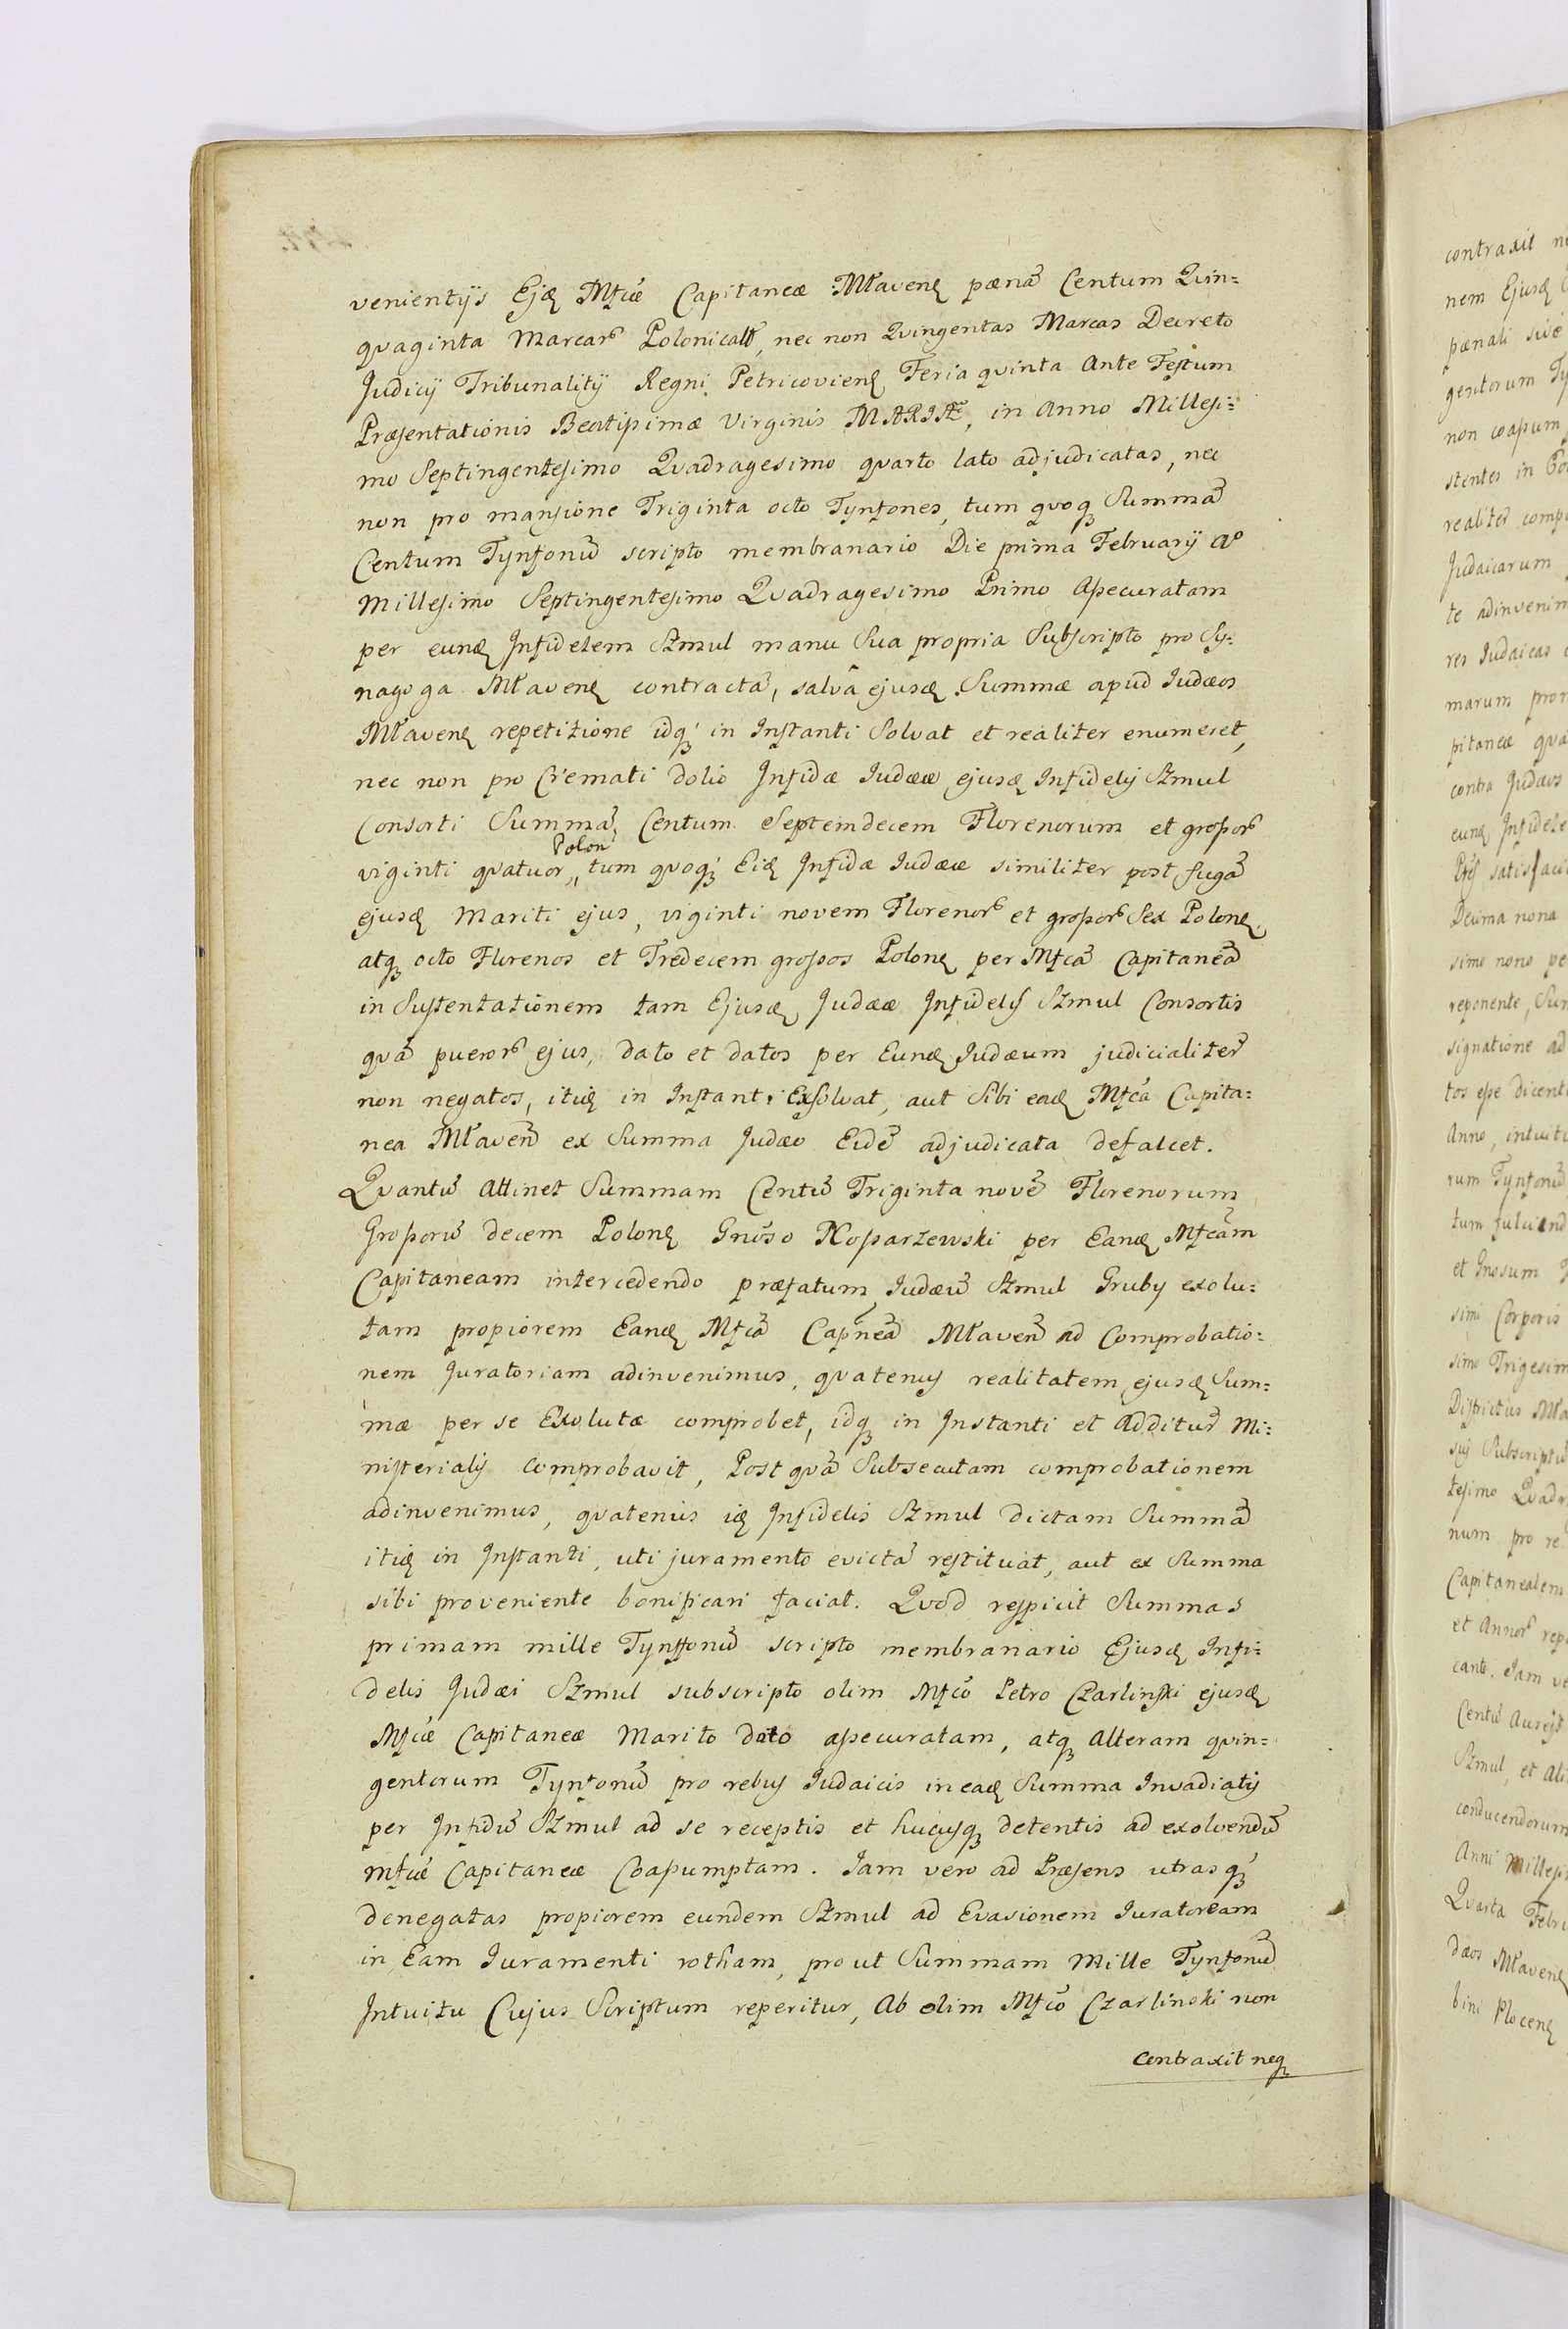 venientijs Ejq Mfcæ Capitaneæ Mławenq pænā Centum Quin=
qvaginta Marcarb Polonicalb, nec non Qvingentas Marcas Decreto
Judicij Tribunalitij Regni Petricovienq Feria qvinta Ante Festum
Præsentationis Beatissimæ Virginis MARIÆ, in Anno Millesi=
mo Septingentesimo Qvadragesimo qvarto lato adjudicatas, nec
non pro mansione Triginta octo Tynfones, tum qvoq Summā
Centum Tynfonū scripto membranario Die prima February Ao
Millesimo Septingentesimo Qvadragesimo Primo Assecuratam
per eunq Infidelem Szmul manu Sua propria Subscripto pro Sy=
nagoga Mławenq contractā, salvâ ejusq Summæ apud Judæos
Mławenq repetitione idq in Instanti Solvat et realiter enumeret,
nec non pro Cremati dolio Infidæ Judææ ejusq Infidelis Szmul
Consorti Summā Centum Septemdecem Florenorum et grossorb
viginti qvatuor Polon, tum qvoq Eiq Infidæ Judææ similiter post fugā
ejusq Mariti ejus, viginti novem Florenorb et grossorb Sex Polonq,
atq octo Florenos et Tredecem grossos Polonq per Mfcā Capitaneā
in Sustentationem tam Ejusq Judææ Infidelis Szmul Consortis
qvā puerorb ejus, dato et datos per Eunq Judæum judicialiter
non negatos, itiq in Instanti Exsolvat, aut Sibi eaq Mfca Capita=
nea Mławen ex Summa Judæo Eidē adjudicata defalcet.
Qvantū Attinet Summam Centū Triginta novē Florenorum
Grossorū decem Polonq Gnoso Koparzewski per Eanq Mfcam
Capitaneam intercedendo præfatum Judæū Szmul Gruby exolu=
tam propiorem Eanq Mfcā Capneā Mławen ad Comprobatio=
nem Juratoriam adinvenimus, qvatenus realitatem ejusq Sum=
mæ per se Exolutæ comprobet, idq in Instanti et Additur Mi=
nisterialis comprobavit, Post qvā Subsecutam comprobationem
adinvenimus, qvatenus iq Infidelis Szmul dictam Summā
itiq in Instanti, uti juramento evictā restituat, aut ex Summa
sibi proveniente bonificari faciat. Qvod respicit Summas
primam mille Tynffonū scripto membranario Ejusq Infi=
delis Judæi Szmul subscripto olim Mfco Petro Czarlinski ejusq
Mfcæ Capitaneæ Marito dato assecuratam, atq Alteram qvin=
gentorum Tynfonū pro rebus Judaicis in eaq Summa Invadiatis
per Infidū Szmul ad se receptis et hucusq detentis ad exolvendū
Mfcæ Capitaneæ Coassumptam. Jam vero ad Præsens utrasq
denegatas propiorem eundem Szmul ad Evasionem Juratoream
in Eam Juramenti rotham, prout Summam Mille Tynfonū
Intuitu Cujus Scriptum reperitur, Ab olim Mfco Czarlinski non
contraxit neq
contraxit
nem Ejusq
pænali sive
gentorum
non coassum
stentes in
realiter
Judaicarum
te adinvenim
res Judaicas
marum
pitaneæ qvæ
contra Judæos
eunq Infidele
satisfaci
Decima nona
simo nono
reponente
signatione ad
tos esse dicent
Anno, intuitu
rum Tynfonū
tum
et Gnosum
simi Corporis
simo Trigesim
Districtus
Subscriptū
tesimo Qvadr
num pro re
Capitanealem
et Annorb
canto. Jam
Centū
Szmul, et
conducendorum
Anni Milles
Qvarta Febru
dæos Mławenq
bini Plocenq